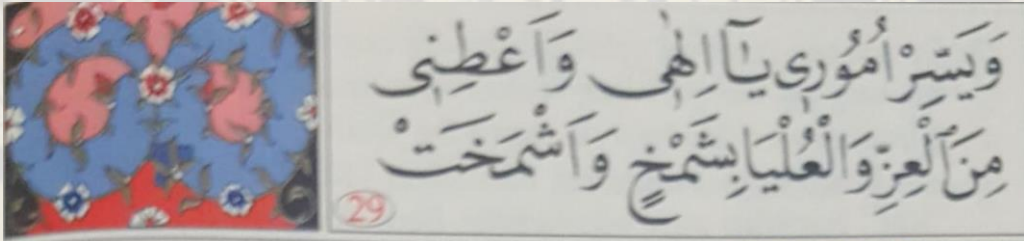 وَيَسِّرْ اُمُوُرِى يَٓا اِلٰهٖى وَاَعْطِنِى
مِنَ الْعِزِّ وَالْعُلْيَا بِشَمْخٍ وَاَشْمَخَتْ
29